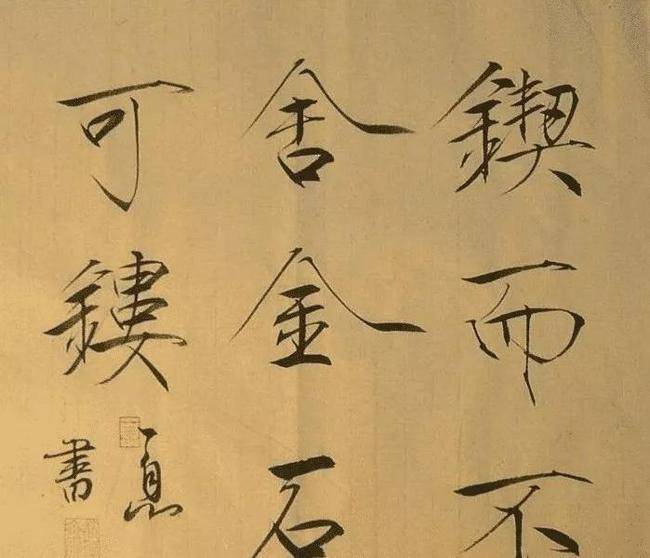 鍥而不
舍金石
可鏤
一息
書